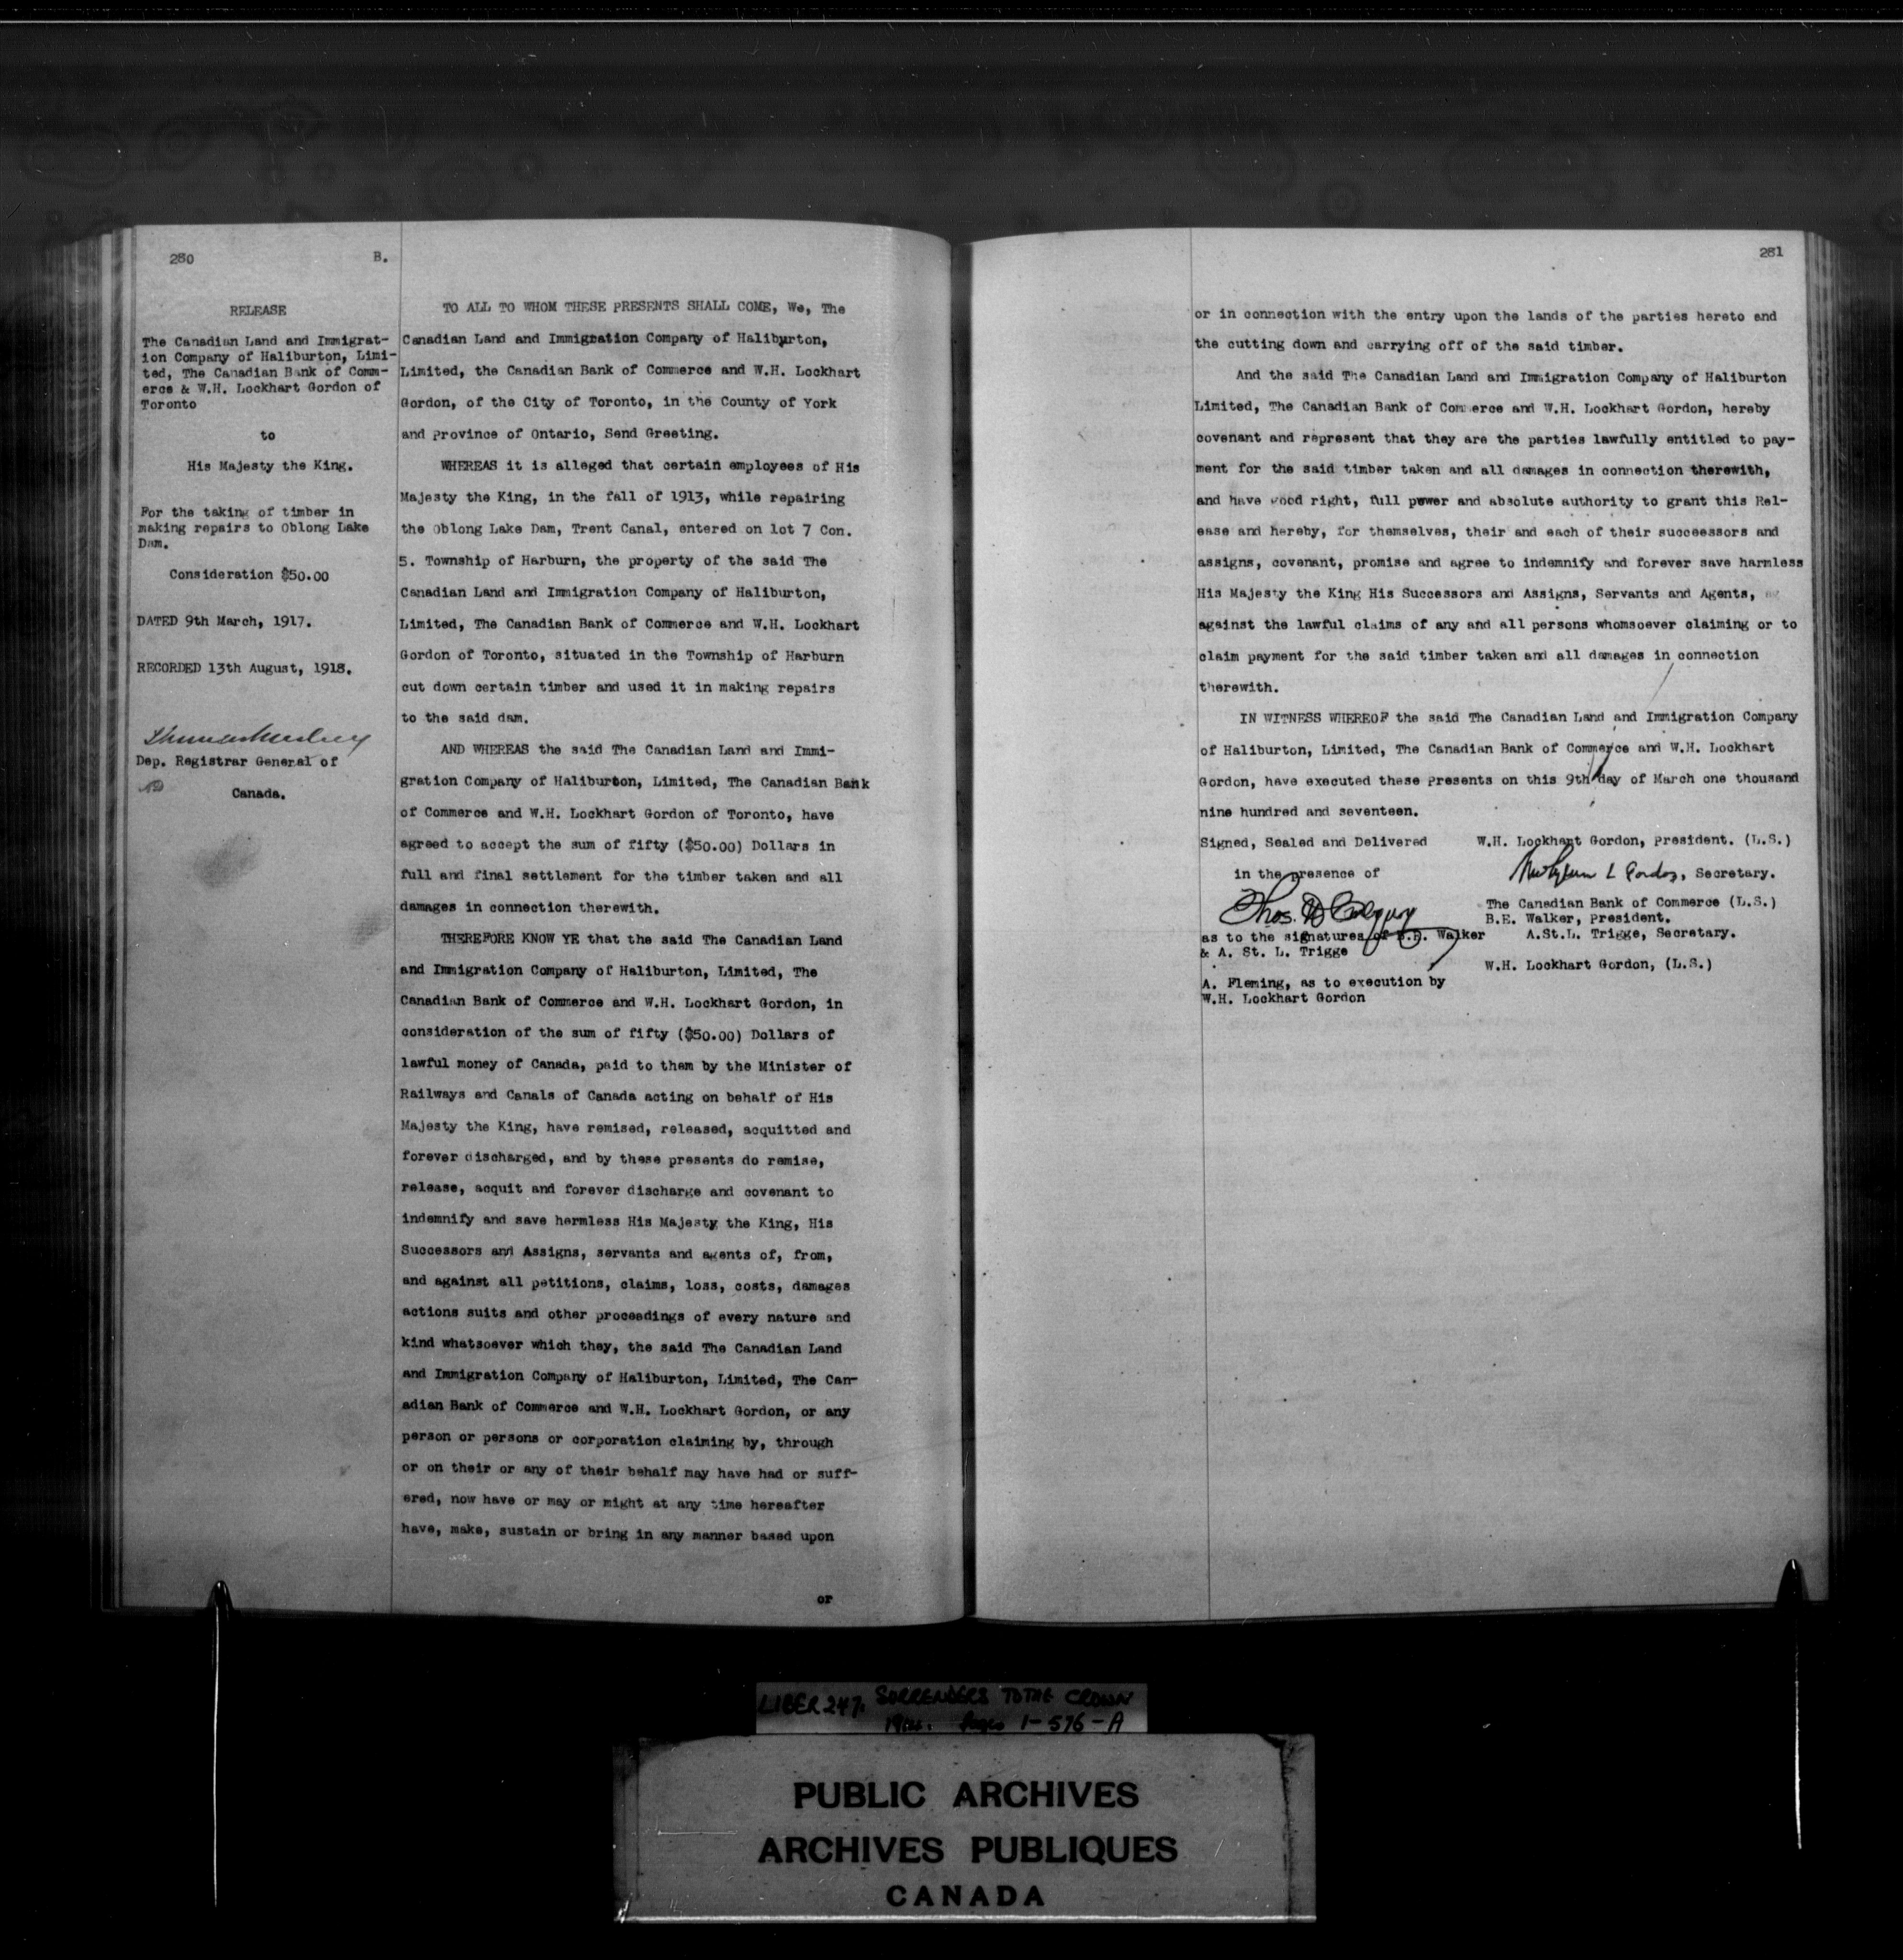 280
B.
RELEASE
The Canadian Land and Immigrat-
ion Company of Haliburton, Limi-
ted, The Canadian Bank of Comm-
erce & W.H. Lockhart Gordon of
Toronto
to
His Majesty the King.
For the taking of timber in
making repairs to Oblong Lake
Dam.
Consideration $50.00
DATED 9th March, 1917.
RECORDED 13th August, 1918.
Dep. Registrar General of
Canada.
TO ALL TO WHOM THESE PRESENTS SHALL COME, We, The
Canadian Land and Immigration Company of Haliburton,
Limited, the Canadian Bank of Commerce and W.H. Lockhart
Gordon, of the City of Toronto, in the County of York
and Province of Ontario, Send Greeting.
WHEREAS it is alleged that certain employees of His
Majesty the King, in the fall of 1913, while repairing
the Oblong Lake Dam, Trent Canal, entered on lot 7 Con.
5. Township of Harburn, the property of the said The
Canadian Land and Immigration Company of Haliburton,
Limited, The Canadian Bank of Commerce and W.H. Lockhart
Gordon of Toronto, situated in the Township of Harburn
cut down certain timber and used it in making repairs
to the said dam.
AND WHEREAS the said The Canadian Land and Immi-
gration Company of Haliburton, Limited, The Canadian Bank
of Commerce and W.H. Lockhart Gordon of Toronto, have
agreed to accept the sum of fifty ($50.00) Dollars in
full and final settlement for the timber taken and all
damages in connection therewith.
THEREFORE KNOW YE that the said The Canadian Land
and Immigration Company of Haliburton, Limited, The
Canadian Bank of Commerce and W.H. Lockhart Gordon, in
consideration of the sum of fifty ($50.00) Dollars of
lawful money of Canada, paid to them by the Minister of
Railways and Canals of Canada acting on behalf of His
Majesty the King, have remised, released, acquitted and
forever discharged, and by these presents do remise,
release, acquit and forever discharge and covenant to
indemnify and save harmless His Majesty the King, His
Successors and Assigns, servants and agents of, from,
and against all petitions, claims, loss, costs, damages
actions suits and other proceedings of every nature and
kind whatsoever which they, the said The Canadian Land
and Immigration Company of Haliburton, Limited, The Can-
adian Bank of Commerce and W.H. Lockhart Gordon, or any
person or persons or corporation claiming by, through
or on their or any of their behalf may have had or suff-
ered, now have or may or might at any time hereafter
have, make, sustain or bring in any manner based upon
or
281
or in connection with the entry upon the lands of the parties hereto and
the cutting down and carrying off of the said timber.
And the said The Canadian Land and Immigration Company of Haliburton
Limited, The Canadian Bank of Commerce and W.H. Lockhart Gordon, hereby
covenant and represent that they are the parties lawfully entitled to pay-
ment for the said timber taken and all damages in connection therewith,
and have good right, full power and absolute authority to grant this Rel-
ease and hereby, for themselves, their and each of their succeessors and
assigns, covenant, promise and agree to indemnify and forever save harmless
His Majesty the King His Successors and Assigns, Servants and Agents,
against the lawful claims of any and all persons whomsoever claiming or to
claim payment for the said timber taken and all damages in connection
therewith.
IN WITNESS WHEREOF the said The Canadian Land and Immigration Company
of Haliburton, Limited, The Canadian Bank of Commerce and W.H. Lockhart
Gordon, have executed these presents on this 9th day of March one thousand
nine hundred and seventeen.
Signed, Sealed and Delivered
in the presence of
Thos.
as to the signatures of B.E. Walker
& A. St. L. Trigge
A. Fleming, as to execution by
W.H. Lockhart Gordon
W.H. Lockhart Gordon, President. (L.S.)
L Gordon, Secretary.
The Canadian Bank of Commerce (L.S.)
B.E. Walker, President.
A.St.L. Trigge, Secretary.
W.H. Lockhart Gordon, (L.S.)
LIBER 247. SURRENDERS TO THE CROWN
Pages 1-576-A
PUBLIC ARCHIVES
ARCHIVES PUBLIQUES
CANADA